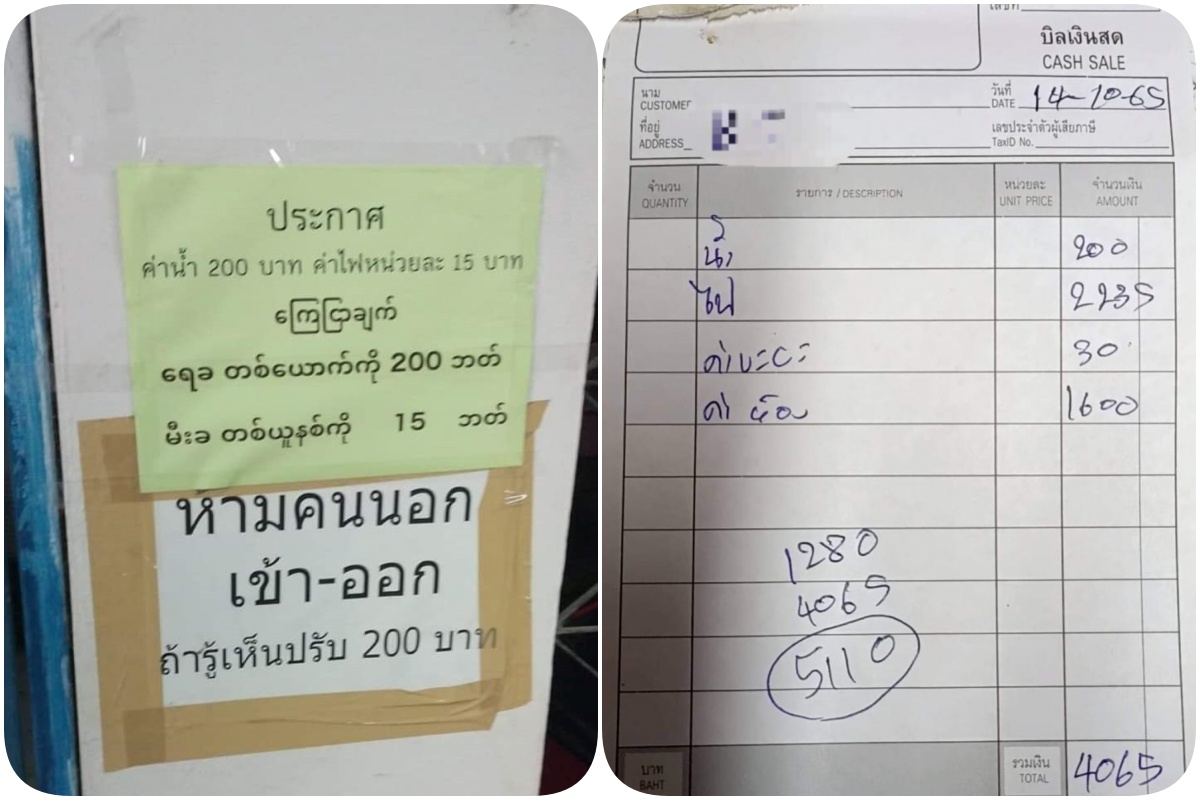 ประกาศ
ค่าน้ำ 200 บาท ค่าไฟหน่วยละ 15 บาท
ကြေငြာချက်
ရေခ တစ်ယောက်ကို 200 ဘတ်
မီးခ တစ်ယူနစ်ကို 15 ဘတ်
ห้ามคนนอก
เข้า-ออก
ถ้ารู้เห็นปรับ 200 บาท
เลขที่
บิลเงินสด
CASH SALE
นาม
CUSTOMER
วันที่
DATE 14-10-65
ที่อยู่
ADDRESS
เลขประจำตัวผู้เสียภาษี
TaxID No.
จำนวน
QUANTITY
รายการ / DESCRIPTION
หน่วยละ
UNIT PRICE
จำนวนเงิน
AMOUNT
น้ำ 200
ไฟ 2235
ค่าขะยะ 30
ค่าห้อง 1600
1280
4065
5110
บาท
BAHT
รวมเงิน
TOTAL 4065